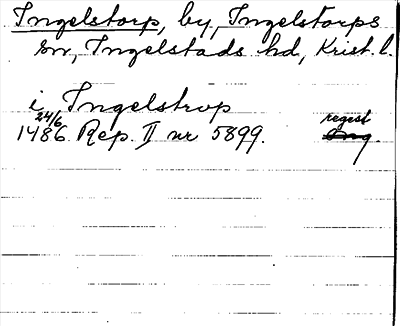 Ingelstorp, by, Ingelstorps
sn, Ingelstads hd, Krist. l.
i Ingelstrop
24/6 regest
1486 Rep. II nr 5899. Orig.